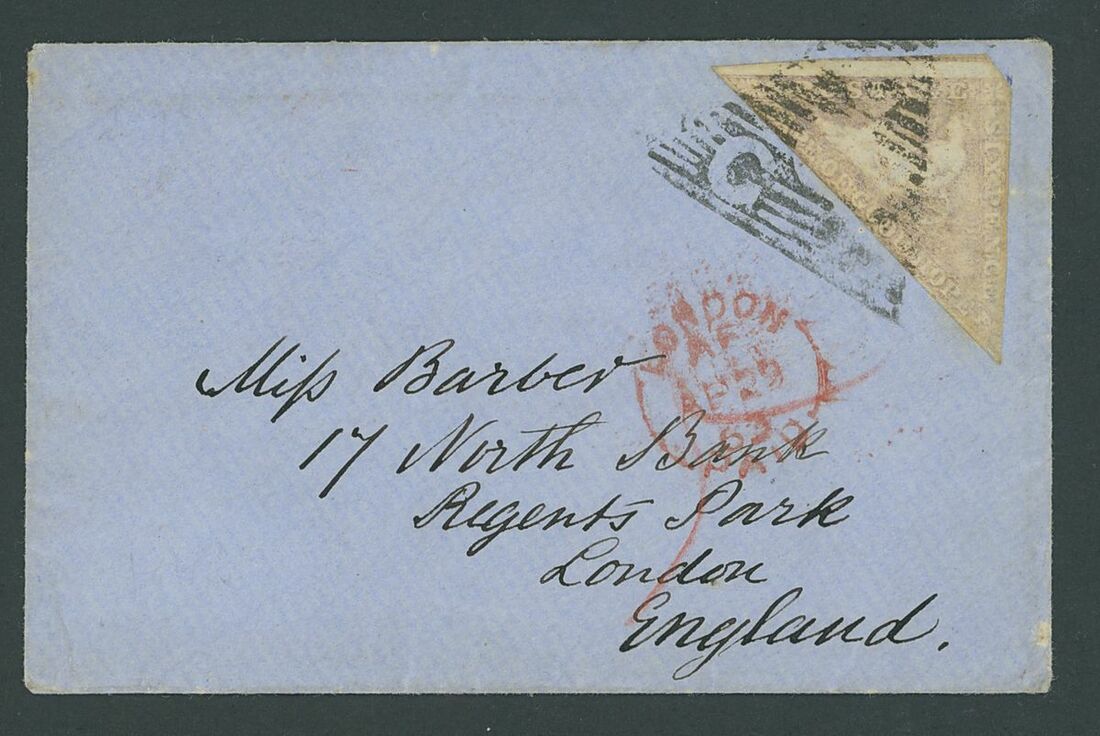 SIX PENCE
LONDON
AP 29
PAID
Miss Barber
17 North Bank
Regents Park
London
England.